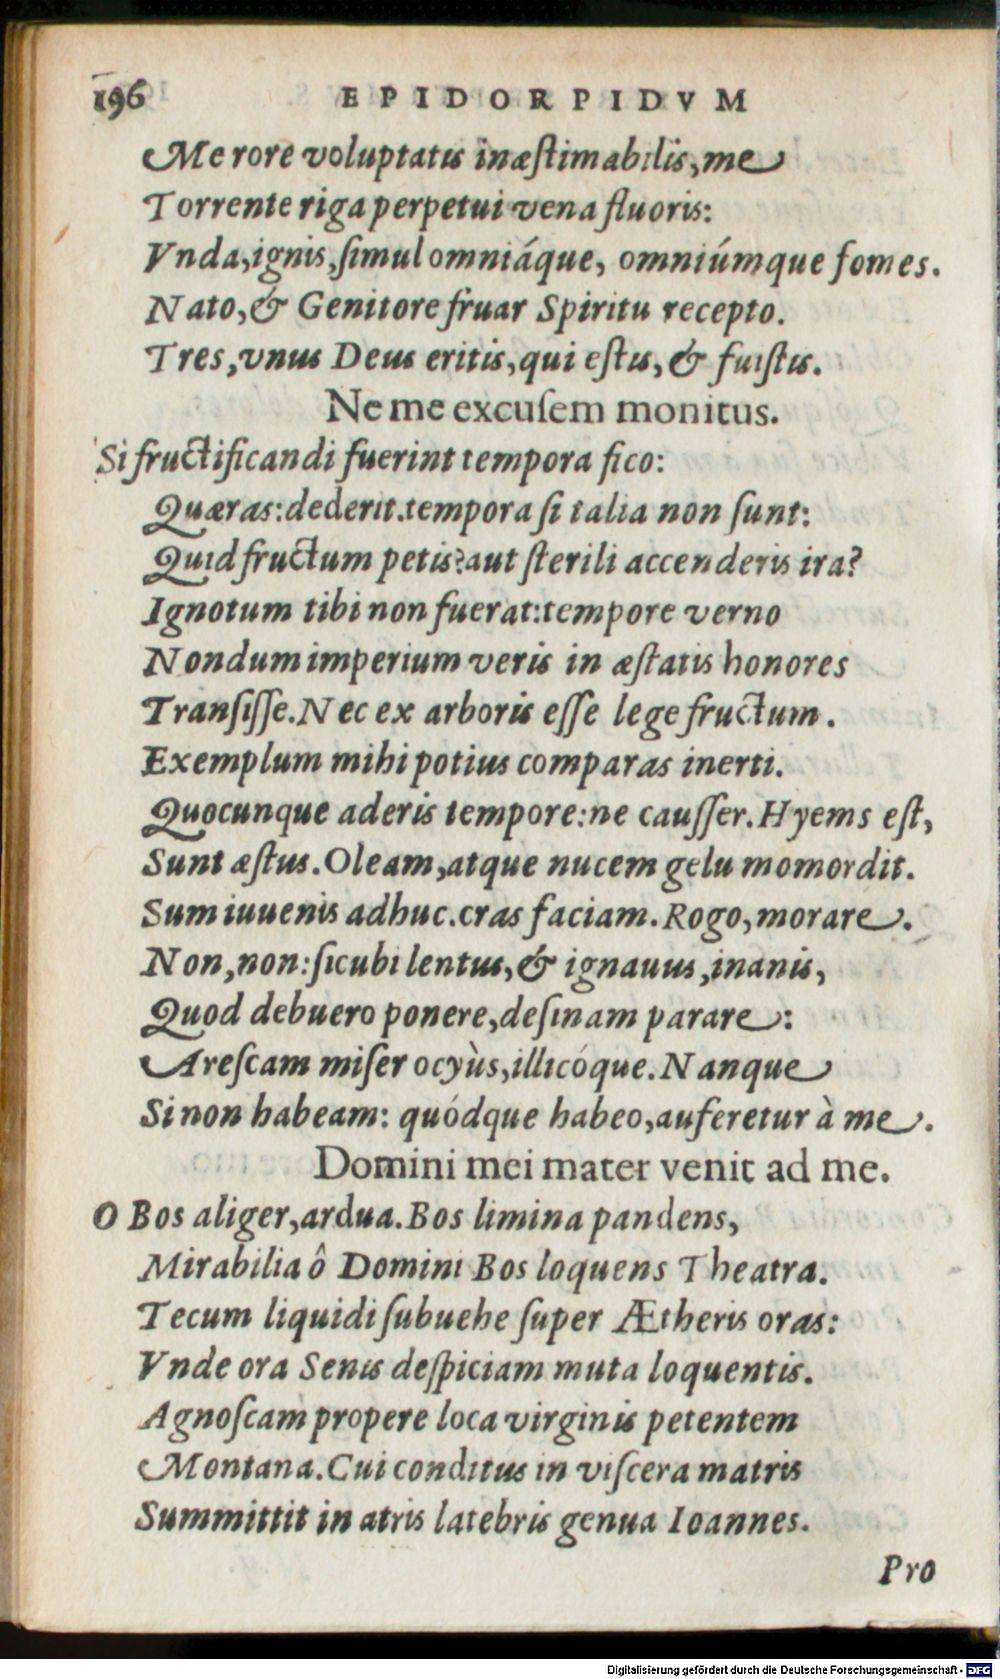 196 EPIDORPIDVM
Me rore voluptatis inæstimabilis, me
Torrente riga perpetui vena fluoris:
Vnda, ignis, simul omniáque, omniúmque fomes.
Nato, & Genitore fruar Spiritu recepto.
Tres, vnus Deus eritis, qui estis, & fuistis.
Ne me excusem monitus.
Si fructificandi fuerint tempora fico:
Quæras: dederit. tempora si talia non sunt:
Quid fructum petis? aut sterili accenderis ira?
Ignotum tibi non fuerat: tempore verno
Nondum imperium veris in æstatis honores
Transisse. Nec ex arboris esse lege fructum.
Exemplum mihi potius comparas inerti.
Quocunque aderis tempore: ne causser. Hyems est,
Sunt æstus. Oleam, atque nucem gelu momordit.
Sum iuuenis adhuc. cras faciam. Rogo, morare.
Non, non: sicubi lentus, & ignauus, inanis,
Quod debuero ponere, desinam parare:
Arescam miser ocyùs, illicóque. Nanque
Si non habeam: quódque habeo, auferetur à me.
Domini mei mater venit ad me.
O Bos aliger, ardua. Bos limina pandens,
Mirabilia ô Domini Bos loquens Theatra.
Tecum liquidi subuehe super Ætheris oras:
Vnde ora Senis despiciam muta loquentis.
Agnoscam propere loca virginis petentem
Montana. Cui conditus in viscera matris
Summittit in atris latebris genua Ioannes.
Pro
Digitalisierung gefördert durch die Deutsche Forschungsgemeinschaft - DFG